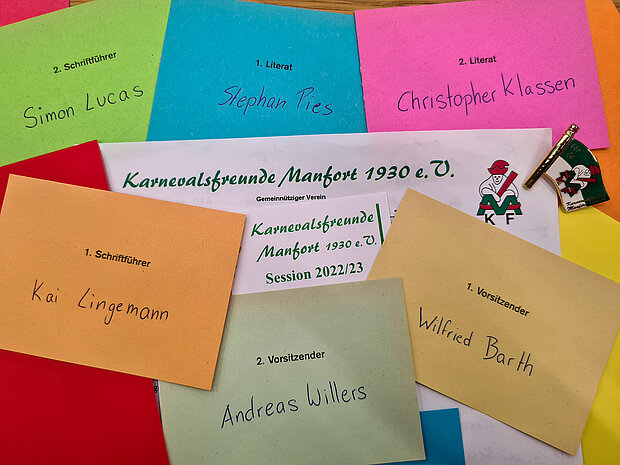 2. Schriftführer
Simon Lucas
1. Literat
Stephan Pies
2. Literat
Christopher Klassen
Karnevalsfreunde Manfort 1930 e.V.
Gemeinnütziger Verein
KF
Karnevalsfreunde
Manfort 1930 e.V.
Session 2022/23
1. Schriftführer
Kai Lingemann
2. Vorsitzender
Andreas Willers
1. Vorsitzender
Wilfried Barth